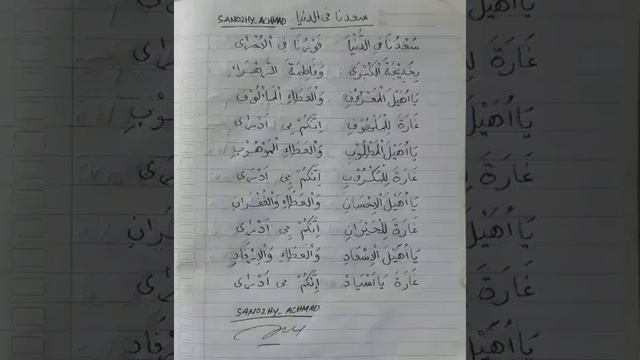 سعدنا فى الدنيا SANDZHY_ACHMAD
سَعْدُنَا فِى الدُّنْيَا فَوْزُنَا فِى الْاُخْرٰى
بِخَدِيْجَةَ الْكُبْرٰى وَفَاطِمَةَ الزَّهْرَاءْ
يَااُهَيْلَ الْمَعْرُوْفِ وَالْعَطَاءِ الْمَأْلُوْفِ
غَارَةً لِلْمَلْهُوْفِ اِنَّكُمْ بِى اَدْرٰى
يَااُهَيْلَ الْمَطْلُوْبِ وَالْعَطَاءِ الْمَوْهُوْبِ
غَارَةً لِلْمَكْرُوْبِ اِنَّكُمْ بِى اَدْرٰى
يَااُهَيْلَ الْاِحْسَانِ وَالْعَطَاءِ وَالْغُفْرَانِ
غَارَةً لِلْحَيْرَانِ اِنَّكُمْ بِى اَدْرٰى
يَااُهَيْلَ الْاِسْعَادِ وَالْعَطَاءِ وَالْاِرْفَادِ
غَارَةً يَااَسْيَادِ اِنَّكُمْ بِى اَدْرٰى
SANDZHY_ACHMAD